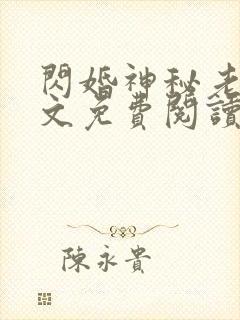 閃婚神秘老
文免費閱讀
陳永貴